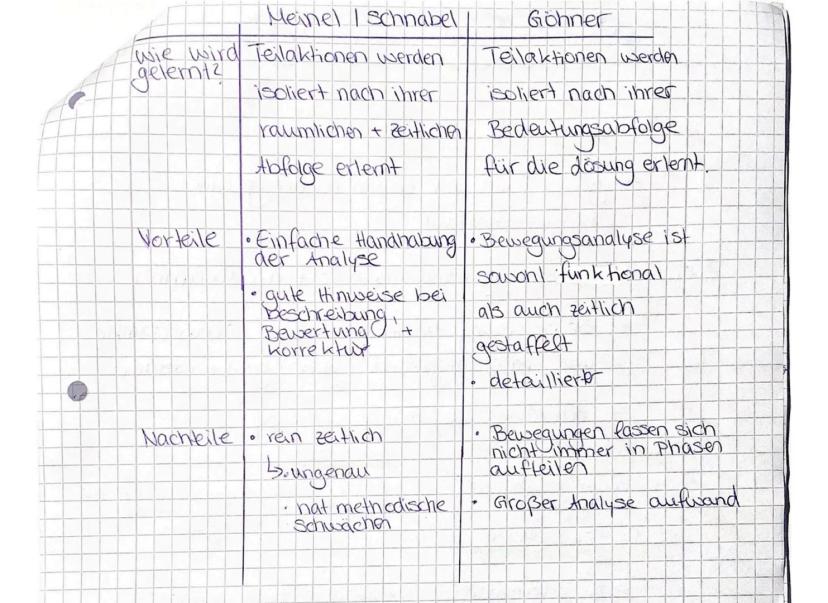 Meinel / Schnabel Göhner
Wie wird Teilaktionen werden Teilaktionen werden
gelernt? isoliert nach ihrer isoliert nach ihrer
räumlichen + zeitlichen Bedeutungsabfolge
Abfolge erlernt für die Lösung erlernt.
Vorteile • Einfache Handhabung • Bewegungsanalyse ist
der Analyse sowohl funktional
• gute Hinweise bei als auch zeitlich
Beschreibung, gestaffelt
Bewertung +
Korrektur • detailliert
Nachteile • rein zeitlich • Bewegungen lassen sich
nicht immer in Phasen
↳ ungenau aufteilen
• hat methodische • Großer Analyse aufwand
Schwächen